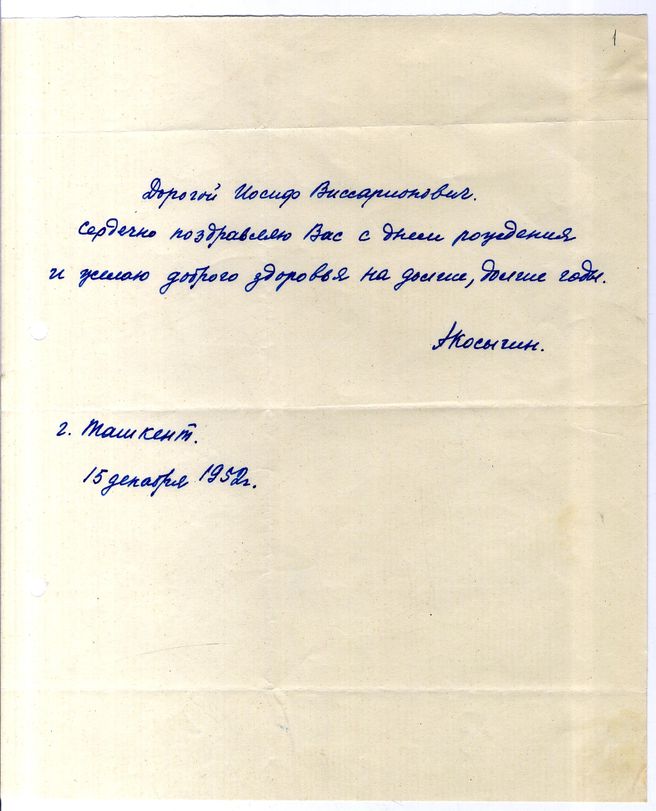 1
Дорогой Иосиф Виссарионович.
Сердечно поздравляю Вас с днем рождения
и желаю доброго здоровья на долгие, долгие годы.
АКосыгин.
г. Ташкент.
15 декабря 1952г.